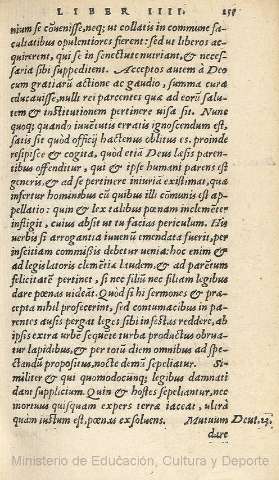 LIBER IIII. 259
nium se cōuenisse, neq; ut collatis in commune fa-
cultatibus opulentiores fierent: sed ut liberos ac-
quirerent, qui se in senectute nutriant, & neces-
saria sibi suppeditent. Acceptos autem à Deo
cum gratiarū actione ac gaudio, summa cura
educauisse, nulli rei parcentes quæ ad eorū salu-
tem & institutionem pertinere uisa sit. Nunc
quoq; quando iuuētutis erratis ignoscendum est,
satis sit quòd officij hactenus oblitus es. proinde
resipisce & cogita, quòd etiā Deus læsis paren-
tibus offenditur, qui & ipse humani parens est
generis, & ad se pertinere iniuriā existimat, quæ
infertur hominibus cū quibus illi cōmunis est ap-
pellatio: quin & lex talibus pœnam inclementer
infligit, cuius absit ut tu facias periculum. His
uerbis si arrogantia iuuenū emendata fuerit, per
inscitiam commissis debetur uenia: hoc enim &
ad legislatoris clemētiā laudem, & ad parētum
felicitatē pertinet, si nec filiū nec filiam legibus
dare pœnas uideāt. Quòd si hi sermones & præ-
cepta nihil profecerint, sed contumacibus in pa-
rentes ausis pergat leges sibi infestas reddere, ab
ipsis extra urbē sequēte turba productus obrua-
tur lapidibus, & per totū diem omnibus ad spe-
ctandū propositus, nocte demū sepeliatur. Si-
militer & qui quomodocunq; legibus damnati
dant supplicium. Quin & hostes sepeliantur, nec
mortuus quisquam expers terræ iaceat, ultrà
quàm iustum est, pœnas exsoluens. Mutuum Deut. 23.
dare
Ministerio de Educación, Cultura y Deporte